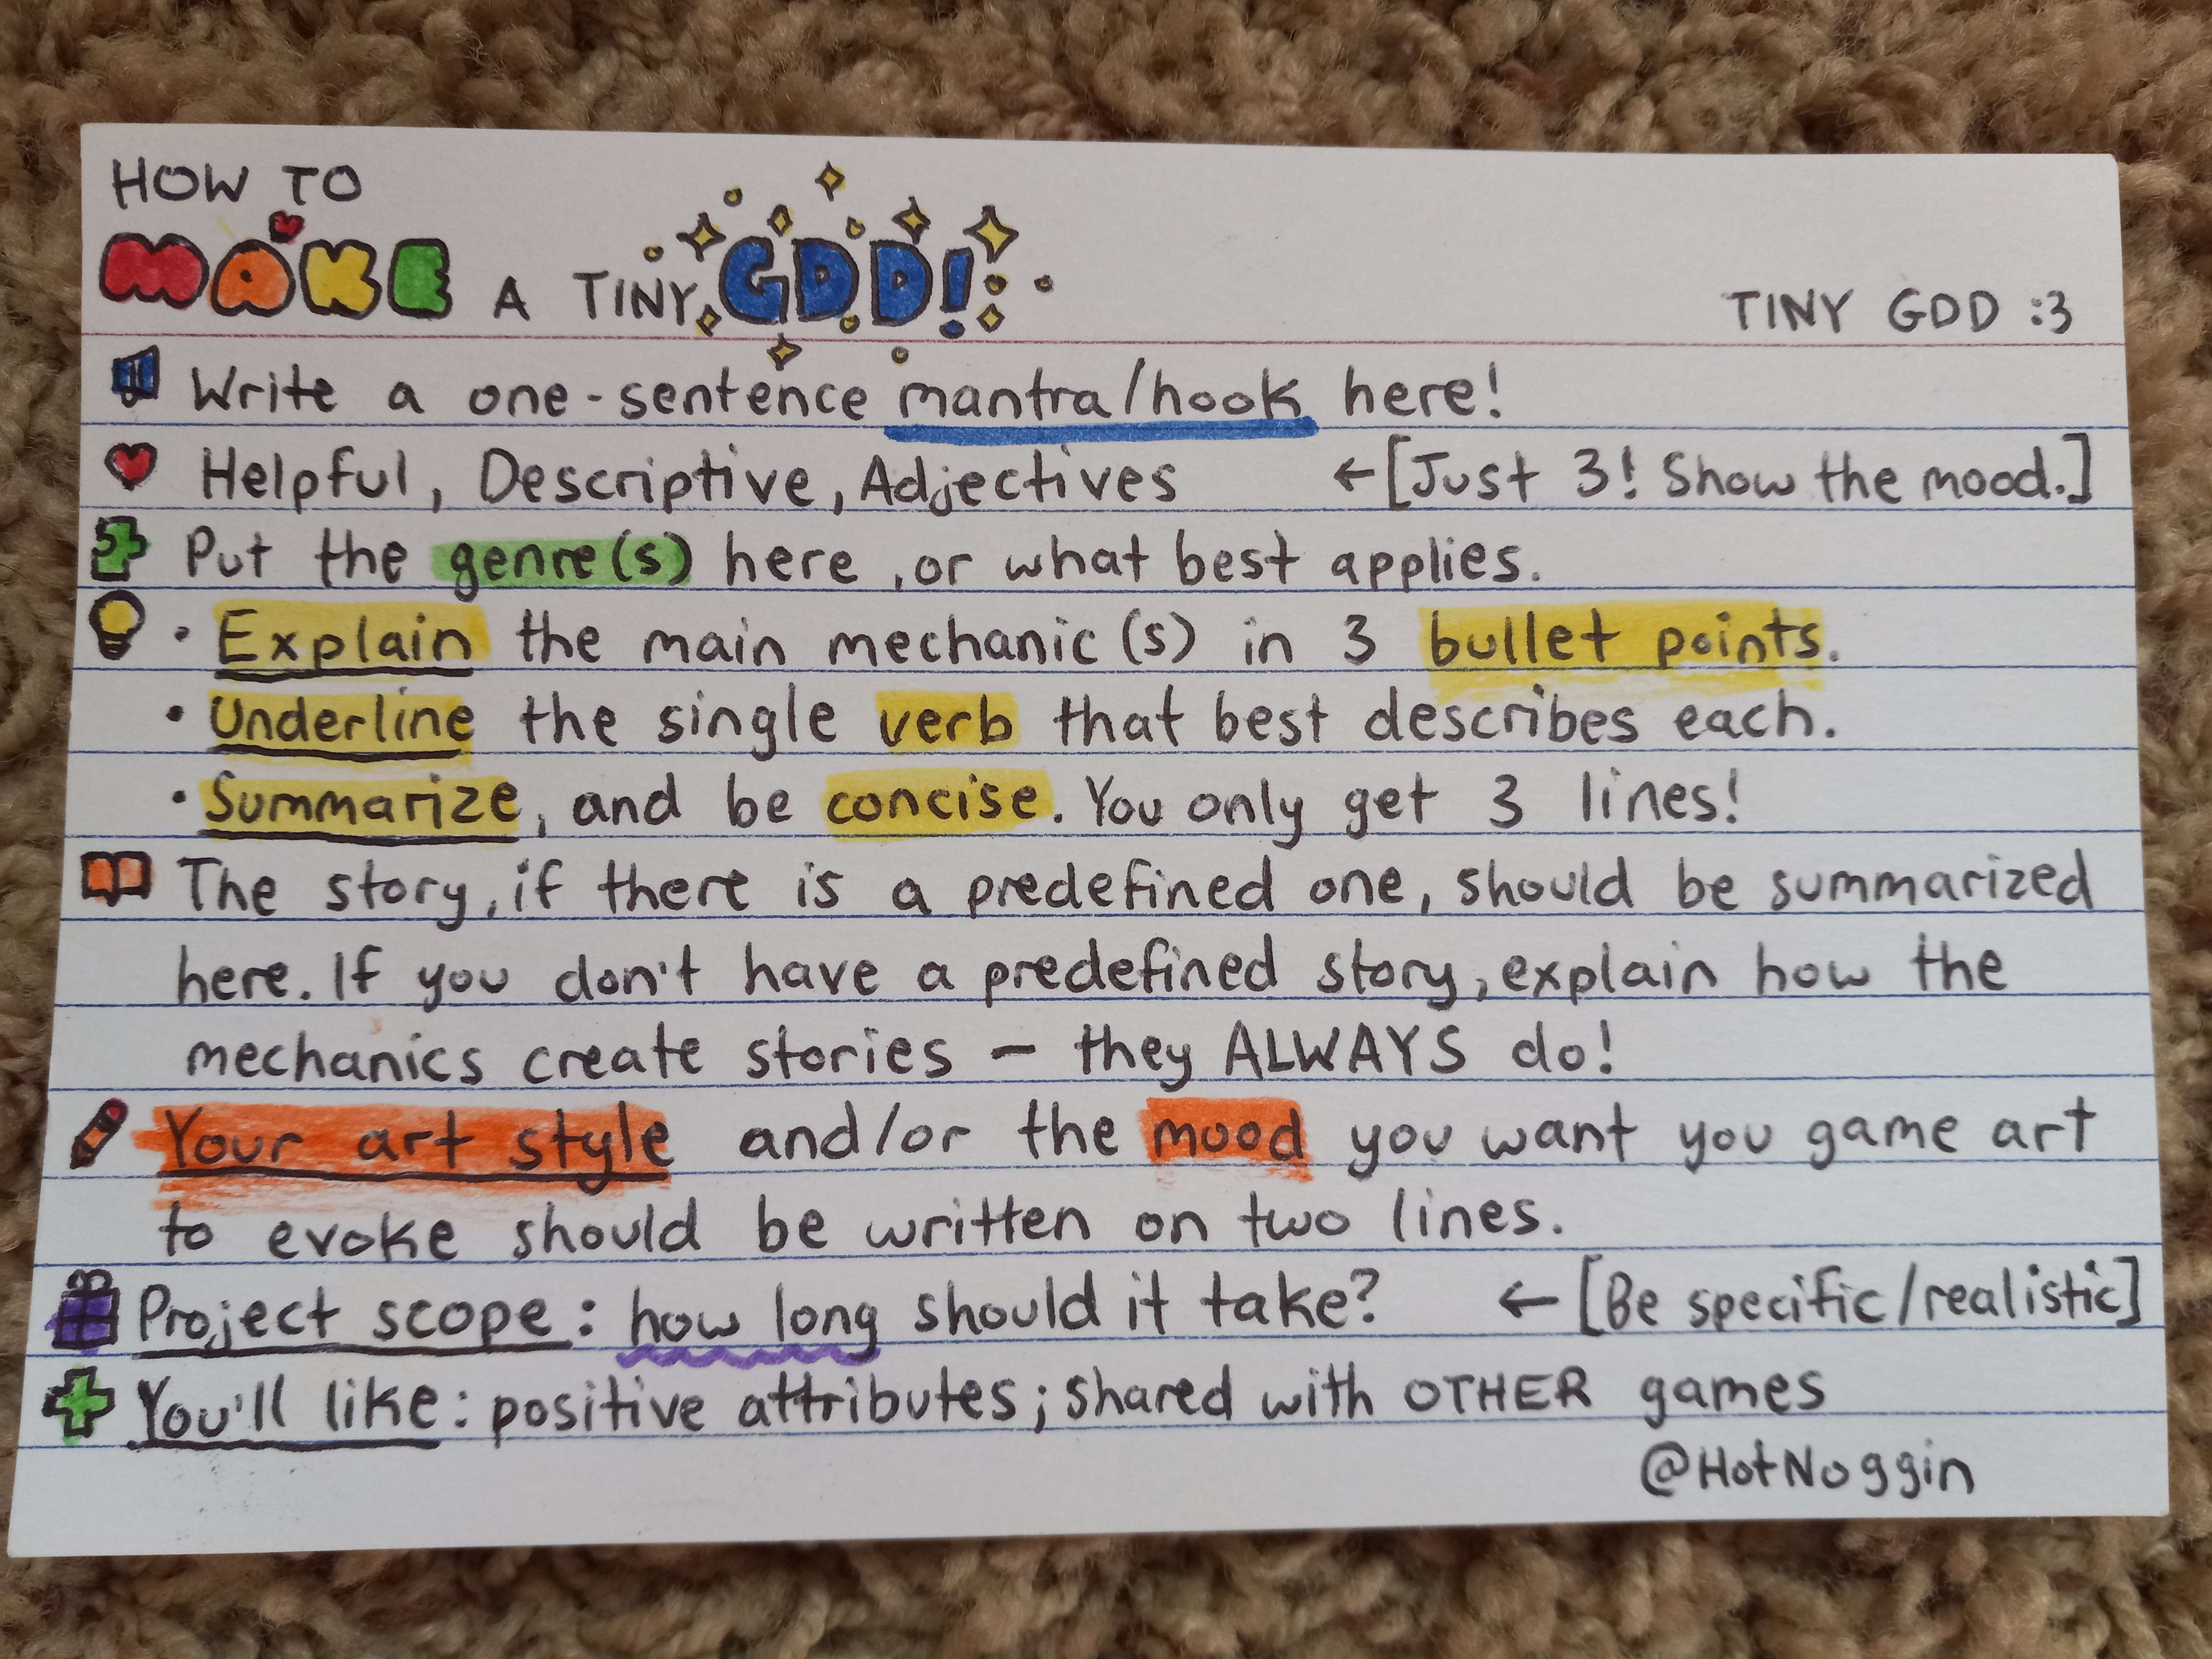 HOW TO
MAKE A TINY GDD!
TINY GDD :3
Write a one-sentence mantra/hook here!
Helpful, Descriptive, Adjectives ←[Just 3! Show the mood.]
Put the genre(s) here, or what best applies.
• Explain the main mechanic(s) in 3 bullet points.
• Underline the single verb that best describes each.
• Summarize, and be concise. You only get 3 lines!
The story, if there is a predefined one, should be summarized
here. If you don't have a predefined story, explain how the
mechanics create stories – they ALWAYS do!
Your art style and/or the mood you want you game art
to evoke should be written on two lines.
Project scope: how long should it take? ←[Be specific/realistic]
You'll like: positive attributes; shared with OTHER games
@HotNoggin